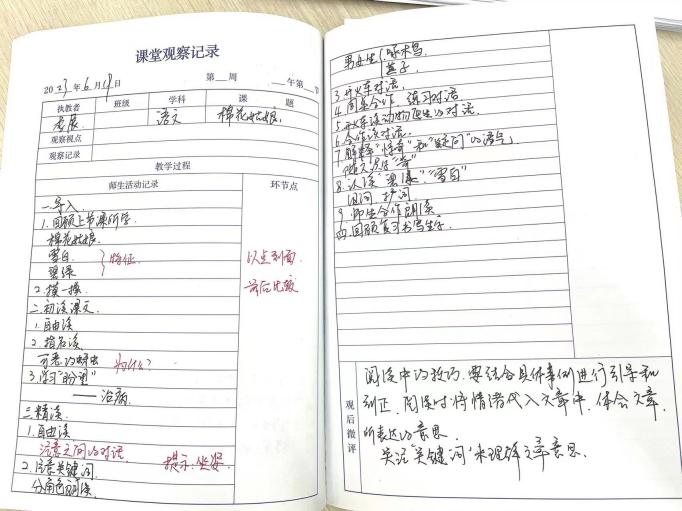 课堂观察记录
2023年6月19日 第 周 午第 节
执教者 班级 学科 课 题
语文 棉花姑娘
观察视点
观察记录
教学过程
师生活动记录 环节点
一.导入
1.回顾上节课所学
棉花姑娘
雪白
碧绿 特征
以点到面
前后比较
2.摸一摸
二.初读课文
1.自由读
2.指名读
可恶的蚜虫 为什么?
3.学习"盼望"
——治病
三.精读
1.自由读
注意之间的对话 提示:坐姿
2.注意关键词
分角色朗读
男女生 啄木鸟
燕子
3.开火车对话
4.同桌合作 练习对话
5.开火车读动物医生的对话
6.合作读对话
7.解释"惊奇"和"疑问"的语气
8.认读"碧绿""雪白"
组词 扩词
9.师生合作朗读
四.回顾复习书写生字
观后微评
阅读中的技巧.要结合具体事例进行引导和
纠正.阅读时将情绪代入文章中.体会文章
所表达的意思.
关注"关键词"来理解文章意思.